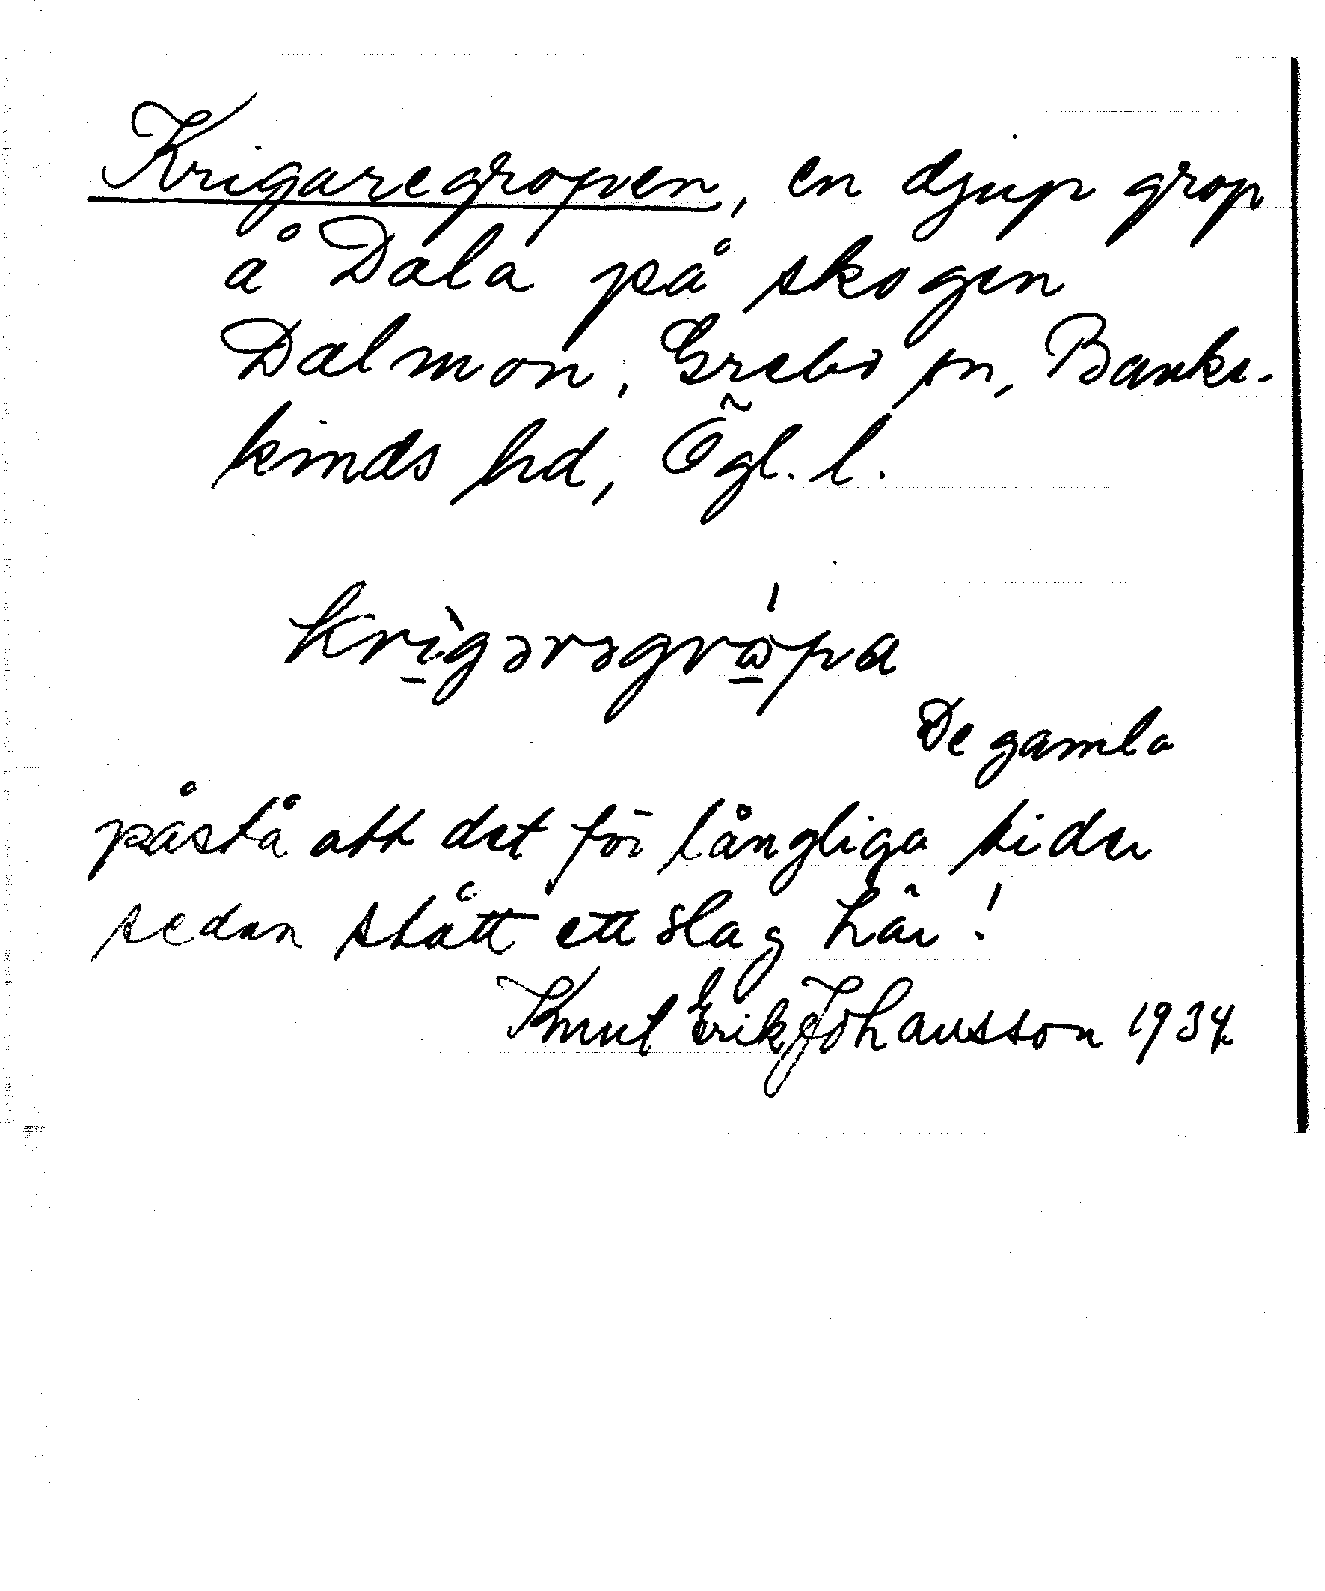 Krigaregropen, en djup grop
å Dala på skogen
Dalmon, Grebo sn, Banke-
kinds hd, Ögl. l.
krìgərəgrɷ́pa
De gamla
påstå att det för långliga tider
sedan stått ett slag här!
Knut Erik Johansson 1934